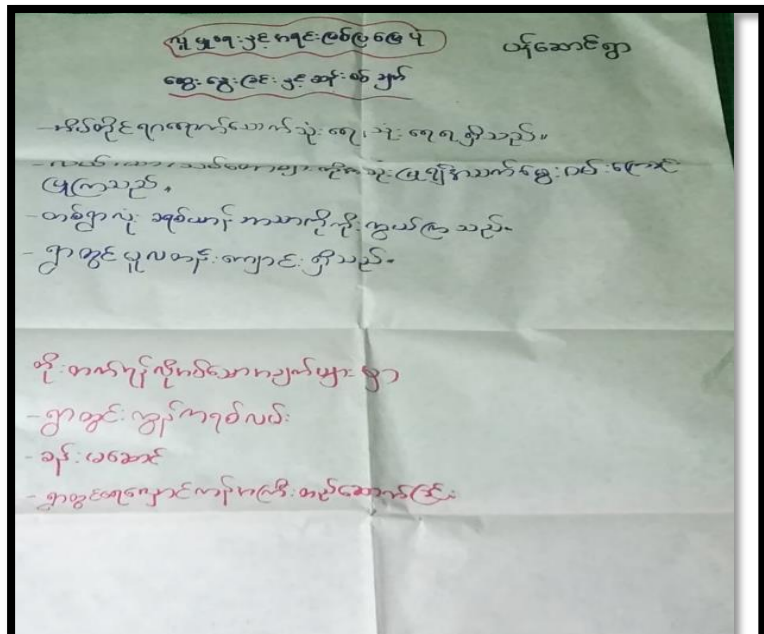 လူမှုရေးနှင့် အရင်းအမြစ်ပြမြေပုံ
ပန်ဆောင်ရွာ
ဆွေးနွေးခြင်းနှင့် ဆန်းစစ်ချက်
- အိမ်တိုင်ရာရောက်သောက်သုံးရေ၊ သုံးရေရရှိသည်။
- လယ်ယာ၊ သစ်တောများ ကိုအသုံးပြု၍အသက်မွေးဝမ်းကြောင်း
ပြုကြသည်။
- တစ်ရွာလုံး ခရစ်ယာန် ဘာသာကိုကိုးကွယ်ကြသည်။
- ရွာတွင် မူလတန်းကျောင်း ရှိသည်။
တိုးတက်ရန်လိုအပ်သောအချက်များမှာ
- ရွာတွင်း ကွန်ကရစ်လမ်း
- ခန်းမဆောင်
- ရွာတွင်ရေလှောင်ကန်အကြီးတည်ဆောက်ခြင်း